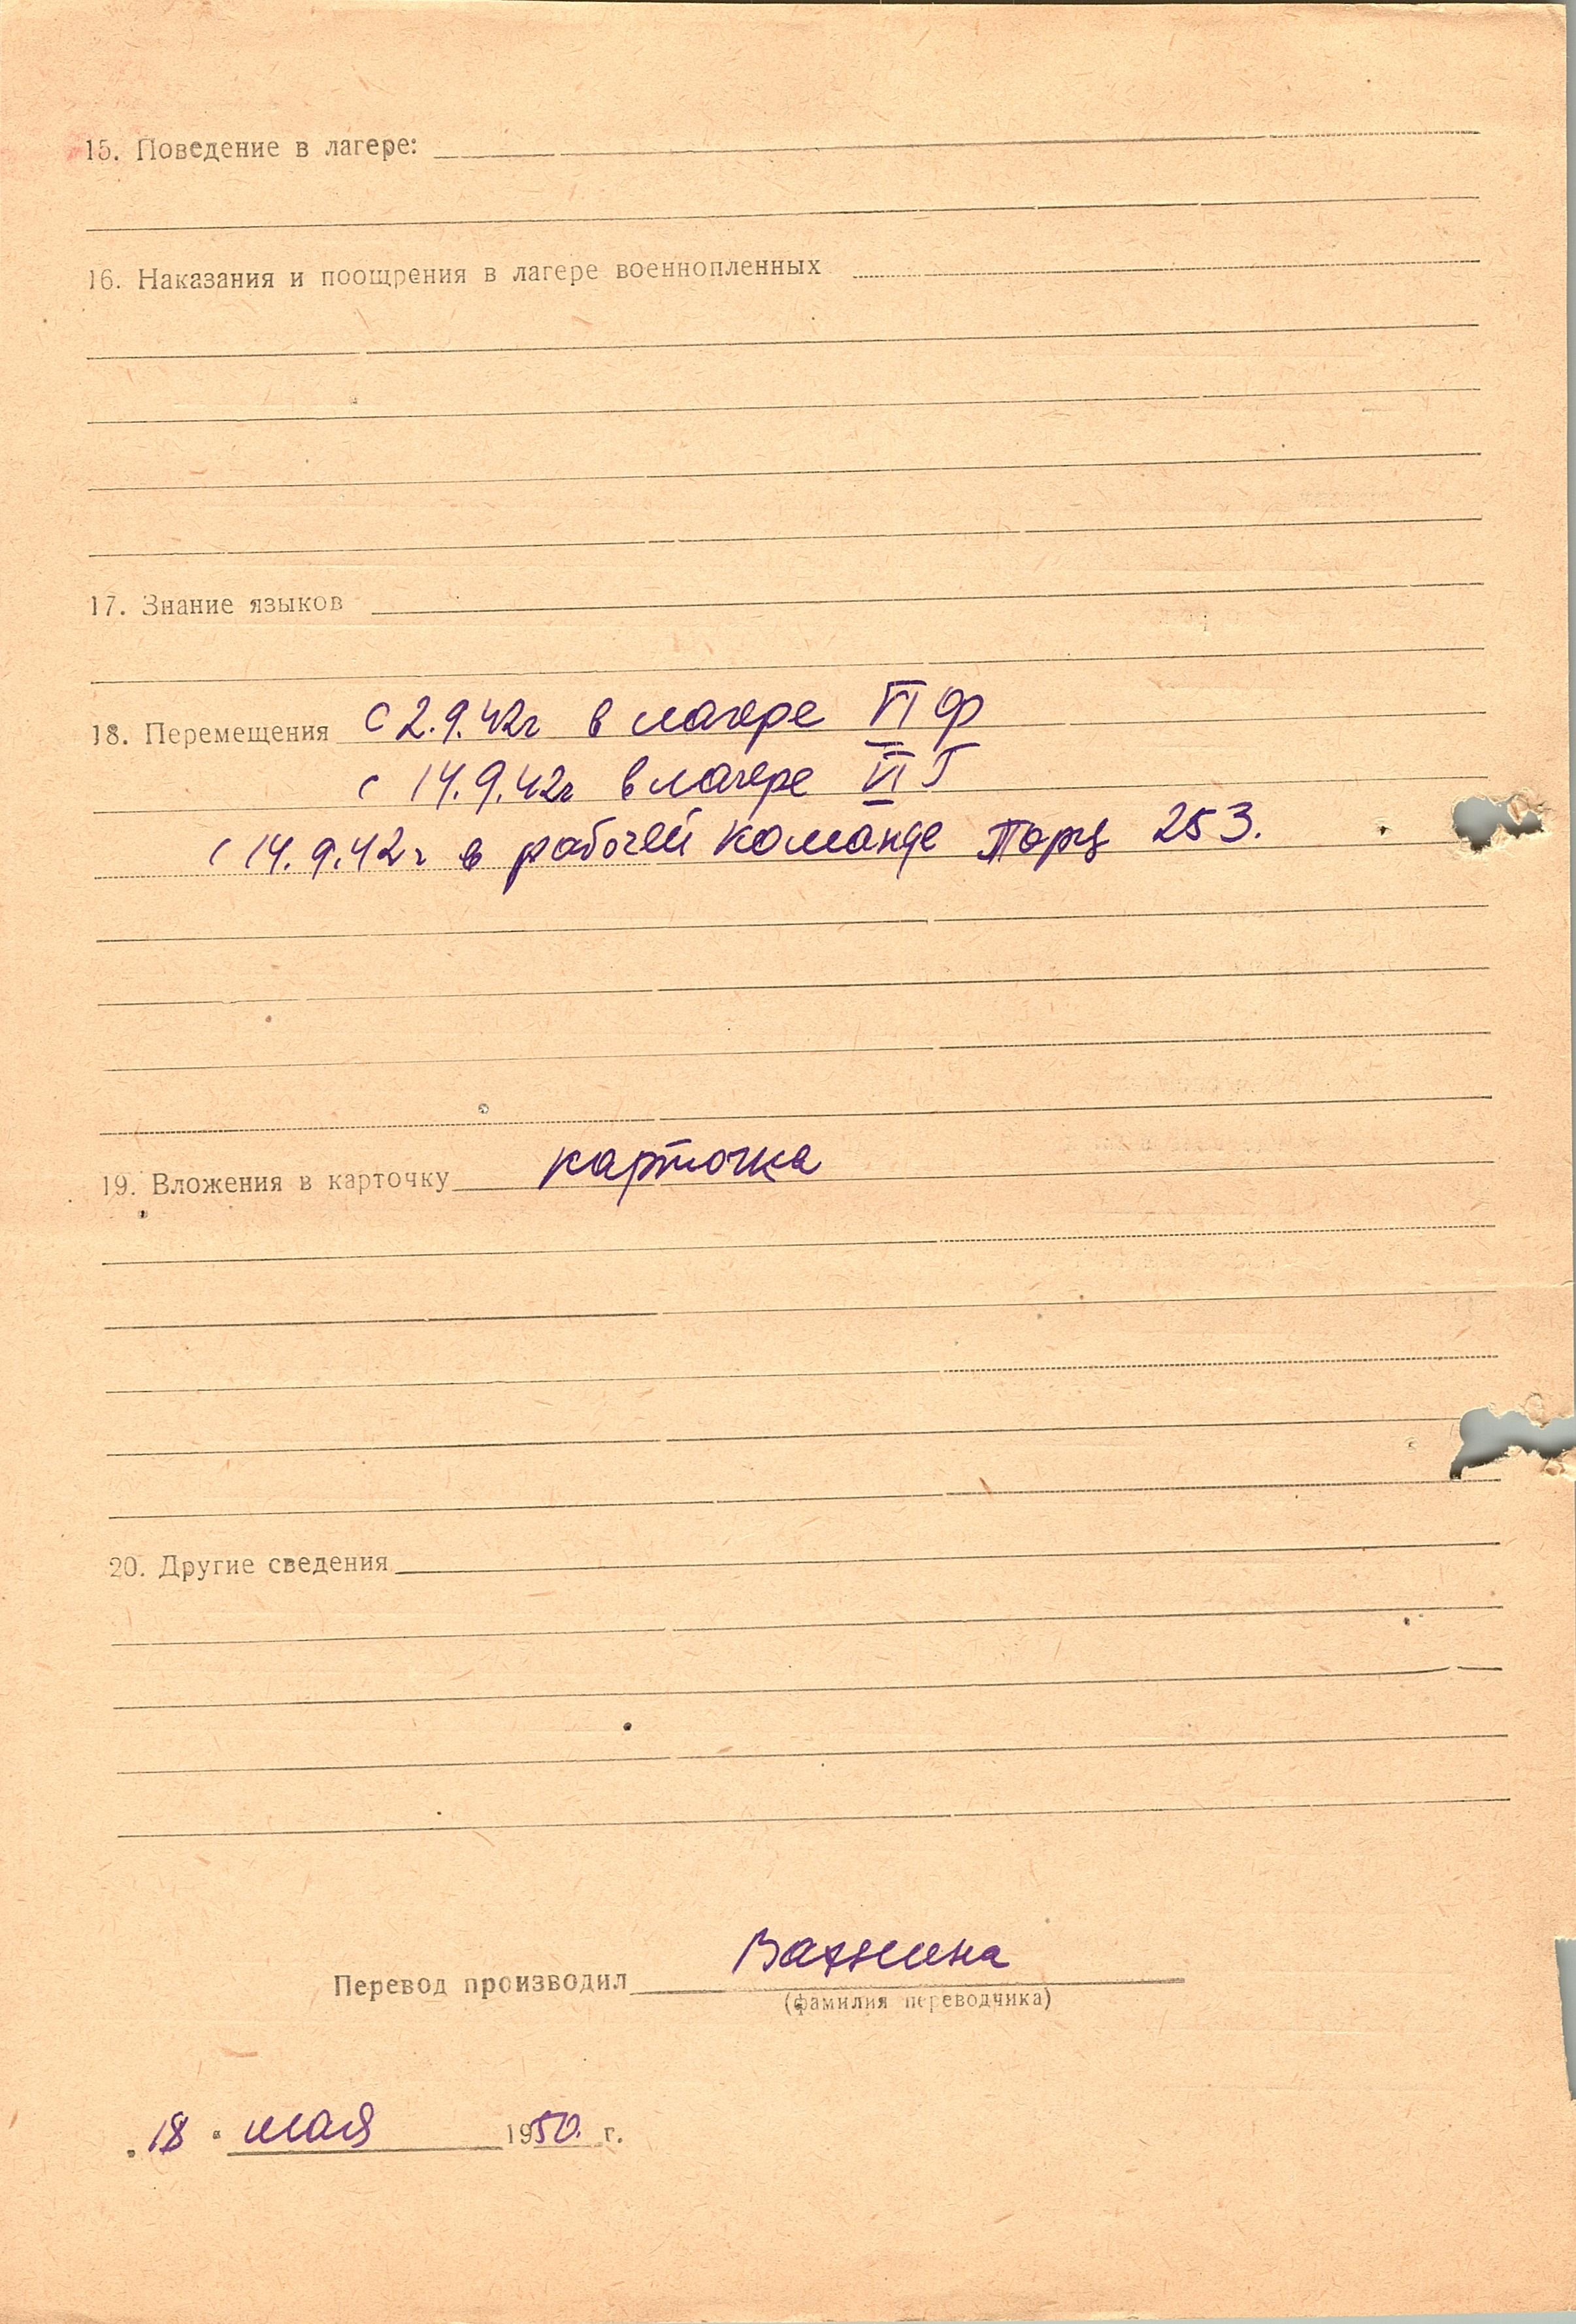 15. Поведение в лагере:
16. Наказания и поощрения в лагере военнопленных
17. Знание языков
18. Перемещения с 2.9.42г в лагере VI Ф
с 14.9.42г в лагере VI Г
с 14.9.42г в рабочей команде Порц 253.
19. Вложения в карточку карточка
20. Другие сведения
Перевод производил
(фамилия переводчика)
„18" мая 1950. г.